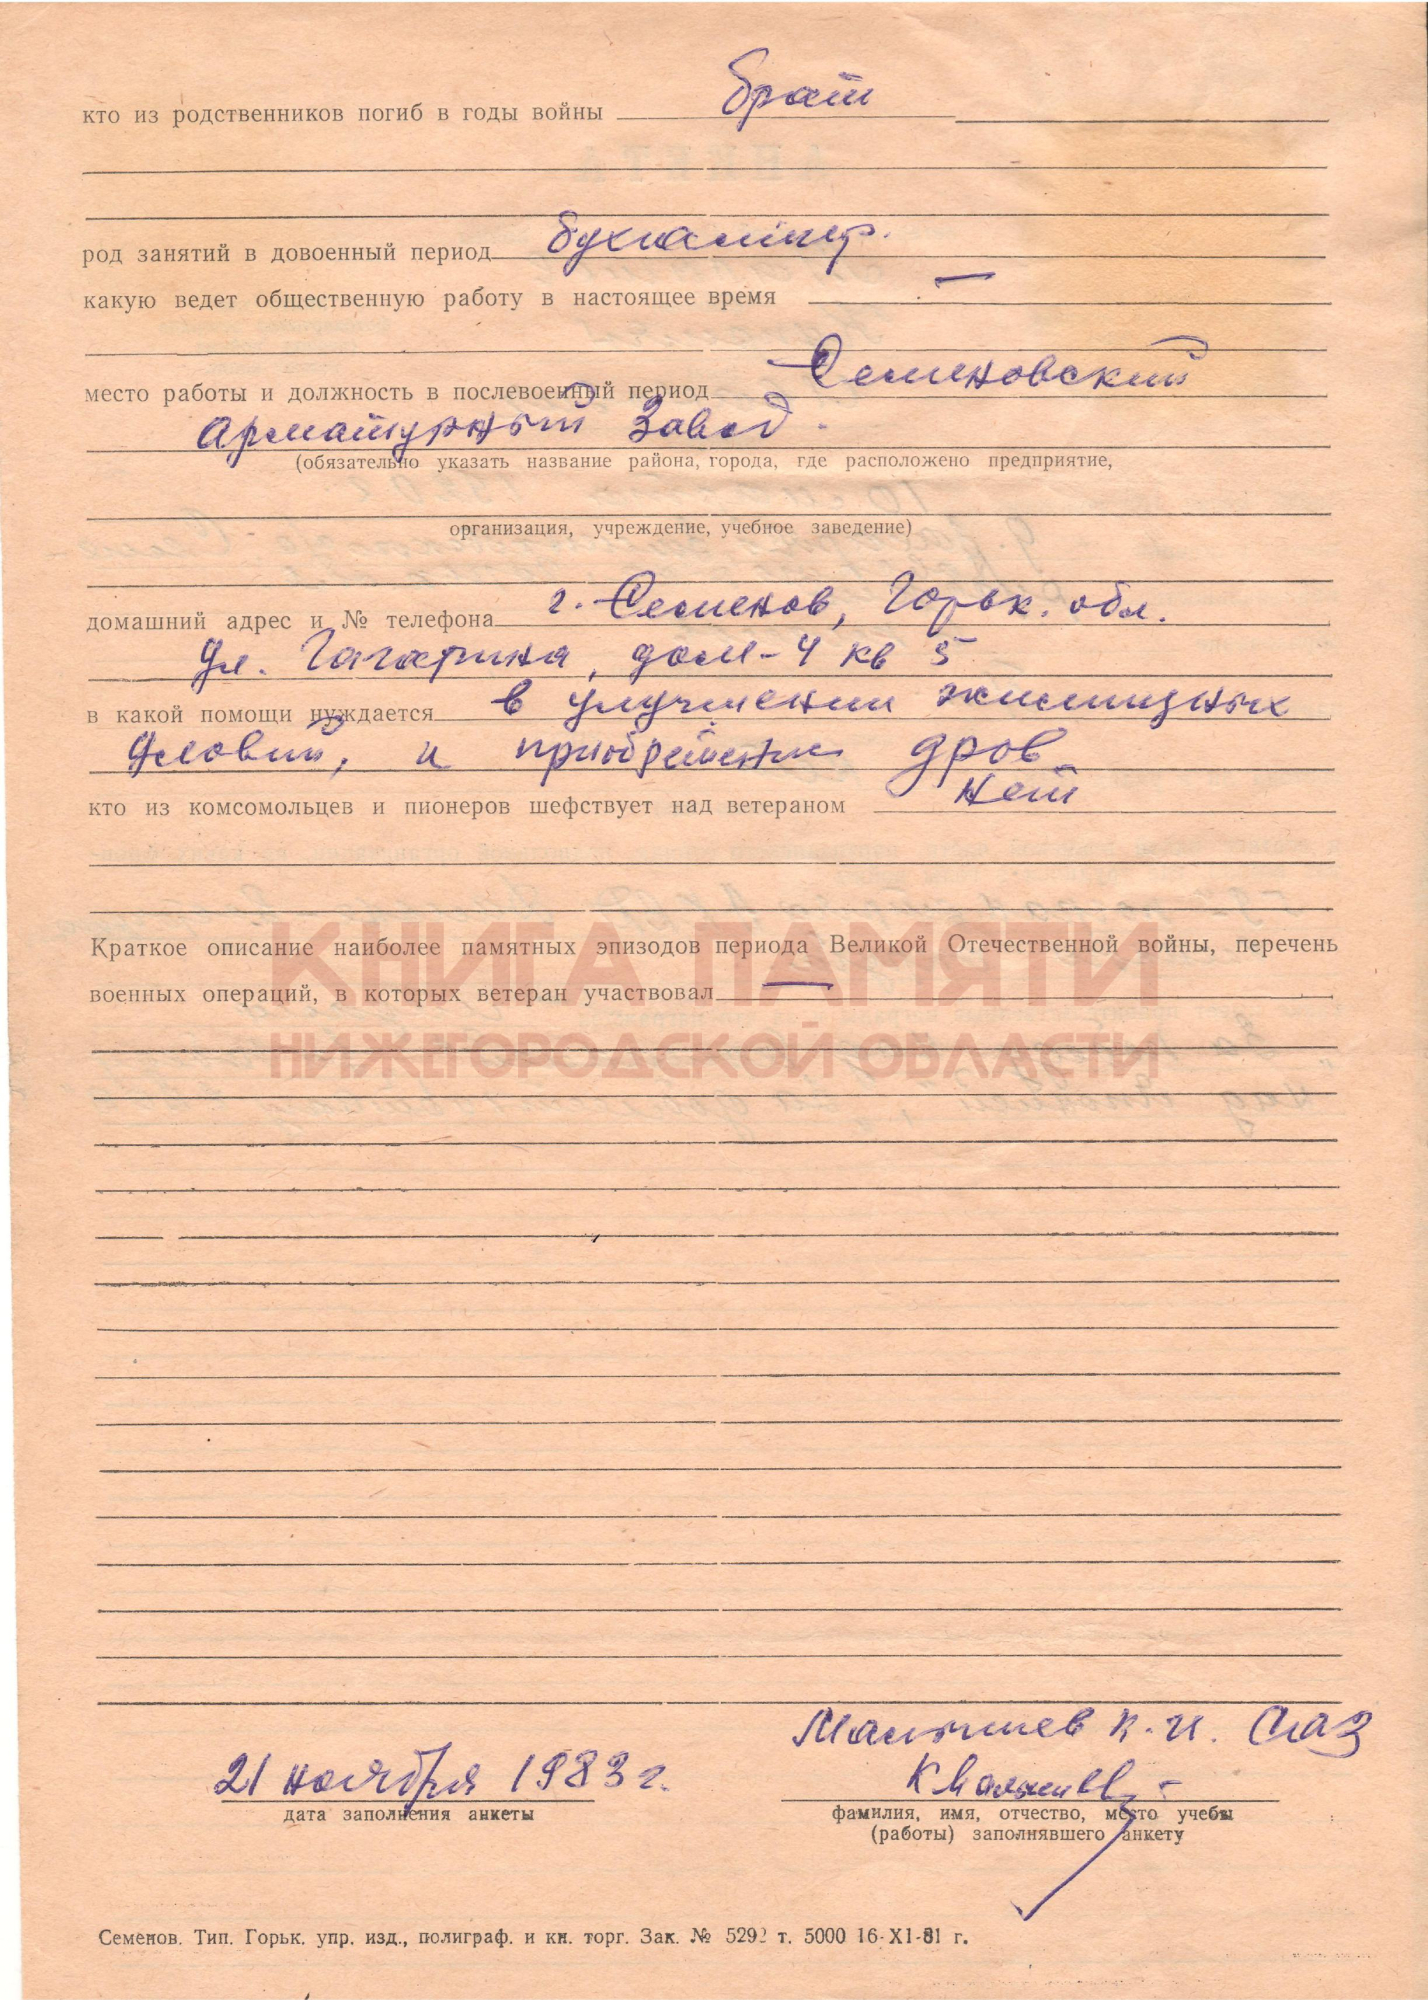 кто из родственников погиб в годы войны брат
род занятий в довоенный период бухгалтер.
какую ведет общественную работу в настоящее время —
место работы и должность в послевоенный период Семеновский
арматурный завод.
(обязательно указать название района, города, где расположено предприятие,
организация, учреждение, учебное заведение)
домашний адрес и № телефона г. Семенов, Горьк. обл.
ул. Гагарина, дом-4 кв 5
в какой помощи нуждается в улучшении жилищных
условий, и приобретении дров
кто из комсомольцев и пионеров шефствует над ветераном нет
КНИГА ПАМЯТИ
Краткое описание наиболее памятных эпизодов периода Великой Отечественной войны, перечень
военных операций, в которых ветеран участвовал —
НИЖЕГОРОДСКОЙ ОБЛАСТИ
Малышев К. И. СаАЗ
21 ноября 1983 г. КМалышев
дата заполнения анкеты
фамилия, имя, отчество, место учебы
(работы) заполнявшего анкету
Семенов. Тип. Горьк. упр. изд., полиграф. и кн. торг. Зак. № 5292 т. 5000 16-XI-81 г.